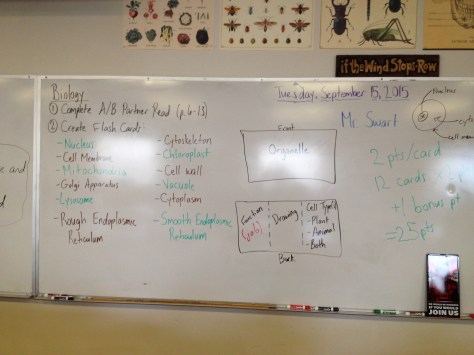 if the Wind Stops-Row
Biology
① Complete A/B Partner Read (p. 6-13)
② Create Flash Cards:
- Nucleus
- Cell Membrane
- Mitochondria
- Golgi Apparatus
- Lysosome
- Rough Endoplasmic
Reticulum
- Cytoskeleton
- Chloroplast
- Cell wall
- Vacuole
- Cytoplasm
- Smooth Endoplasmic
Reticulum
Tuesday, September 15, 2015
Mr. Swart
Front
Organelle
Function
Drawing
Cell Type(s)
- Plant
- Animal
- Both
Back
Nucleus
2 pts/card
12 cards x
+1 bonus pt
= 25 pts
JOIN US